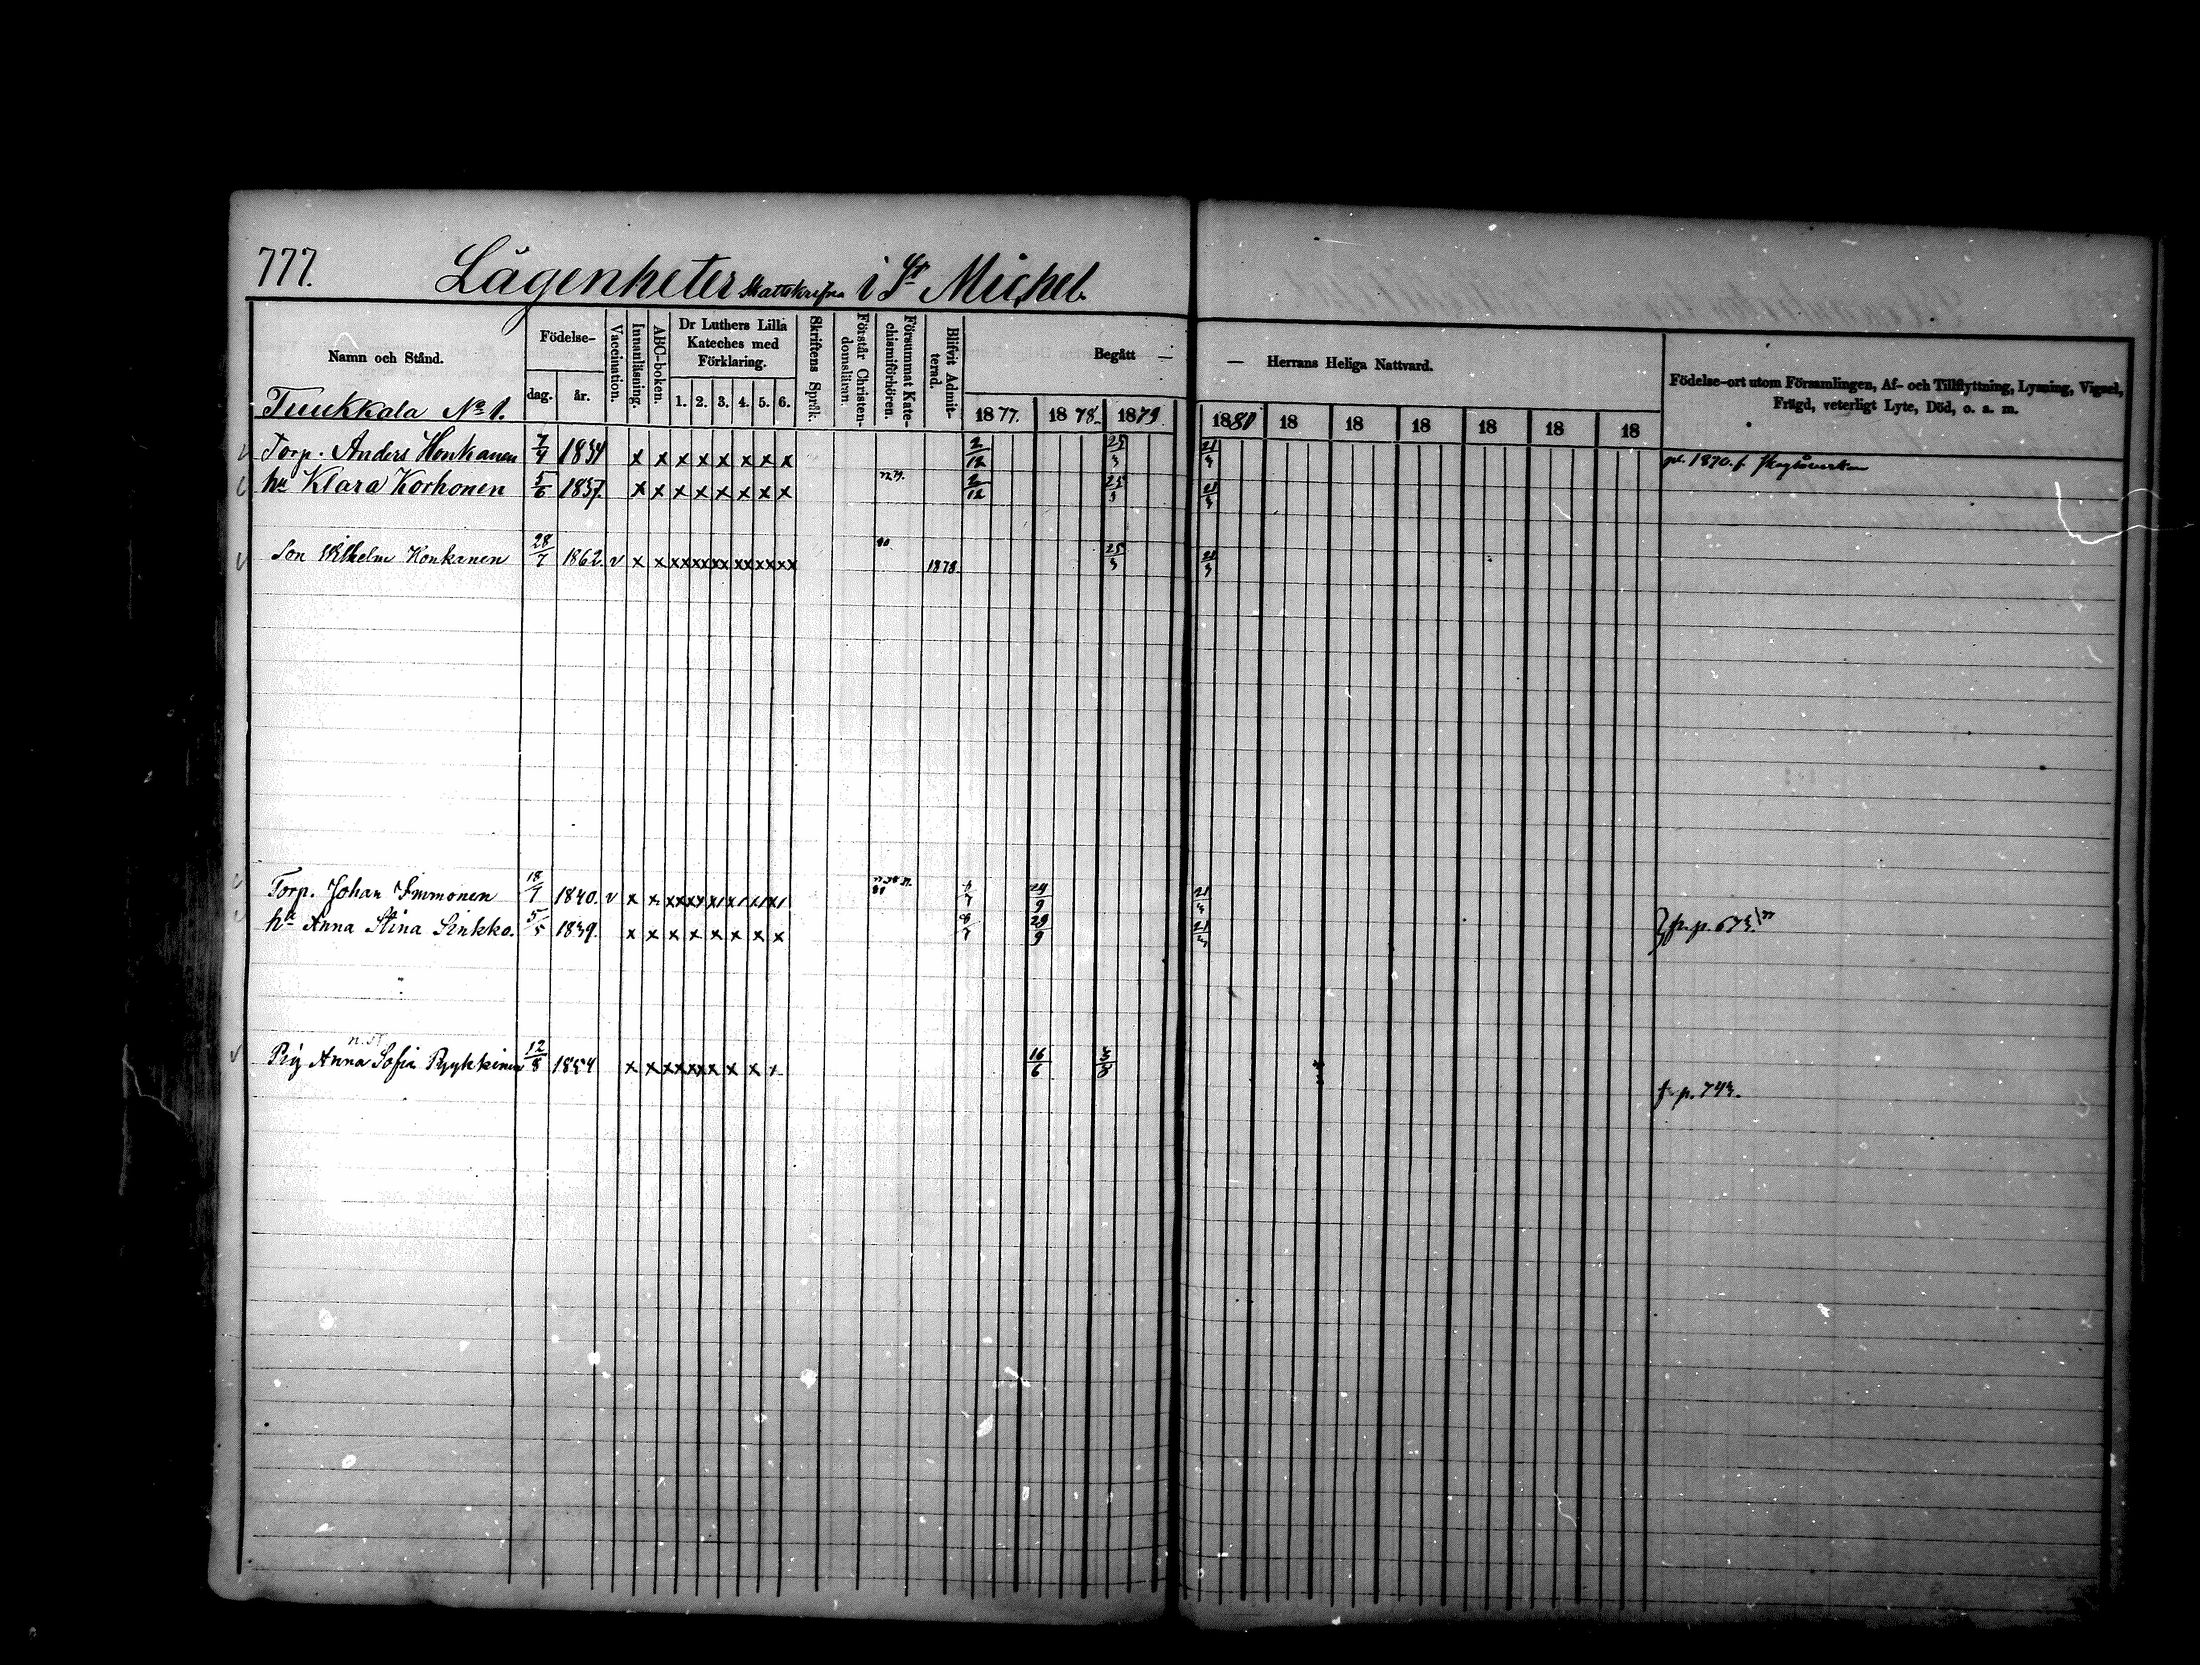 777.
Lägenheter skattskrifna i St Michel.
Namn och Stånd.
Födelse-
dag.
år.
Vaccination.
Innanläsning.
ABC-boken.
Dr Luthers Lilla Kateches med Förklaring.
1. 2. 3. 4. 5. 6.
Skriftens Språk.
Förstår Christen-domsläran.
Försummat Kate-chismiförhören.
Blifvit Admit-terad.
Begått —
— Herrans Heliga Nattvard.
1877. 1878. 1879. 1880 18 18 18 18 18 18
Födelse-ort utom Församlingen, Af- och Tillflyttning, Lysning, Vigsel,
Frägd, veterligt Lyte, Död, o. s. m.
Tuukkala No 1.
Torp. Anders Honkanen 7/4 1834 x x x x x x x x 2/12 25/3 21/3
hu Klara Korhonen 5/6 1837. x x x x x x x x 2/12 25/3 21/3
Son Wilhelm Honkanen 28/7 1862. v x x xx xx xx xx xx xx 80 1878. 25/3 21/3
Torp. Johan Immonen 18/7 1840. v x x 29/9 21/3
hu Anna Stina Sinkko. 5/5 1839. x x x x x x x x 29/9 21/3 fr. p. 673.
Pig Anna Sofia Pyykkinen 12/8 1854 16/6
fr p. 743.